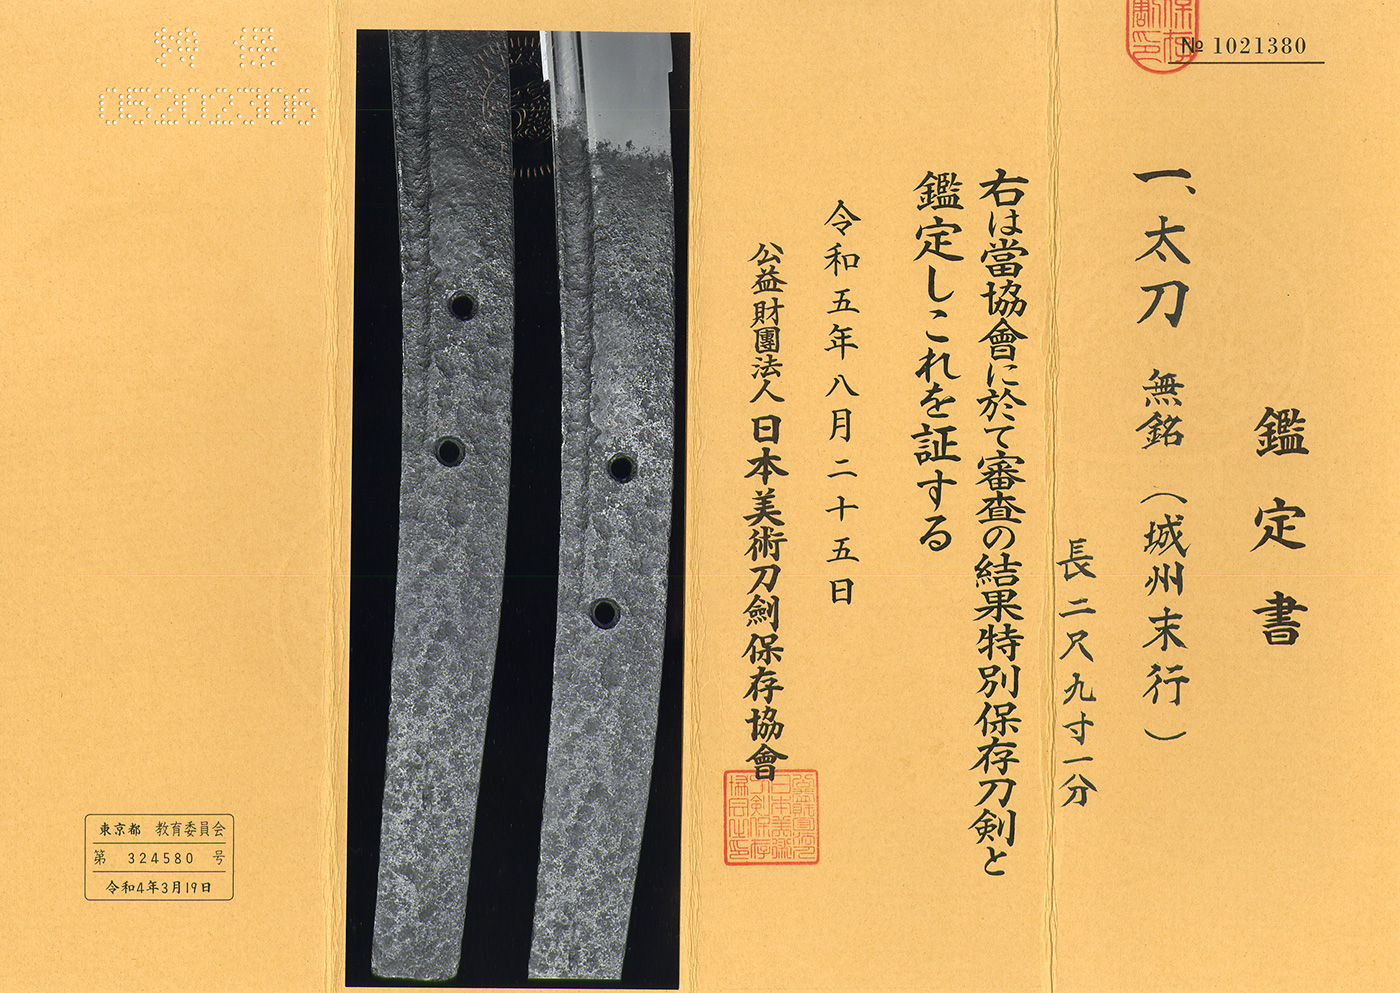 № 1021380
鑑定書
一、太刀 無銘（城州末行）
長二尺九寸一分
右は當協會に於て審査の結果特別保存刀剣と
鑑定しこれを証する
令和五年八月二十五日
公益財團法人 日本美術刀劍保存協會
05202306
東京都 教育委員会
第 324580 号
令和4年3月19日